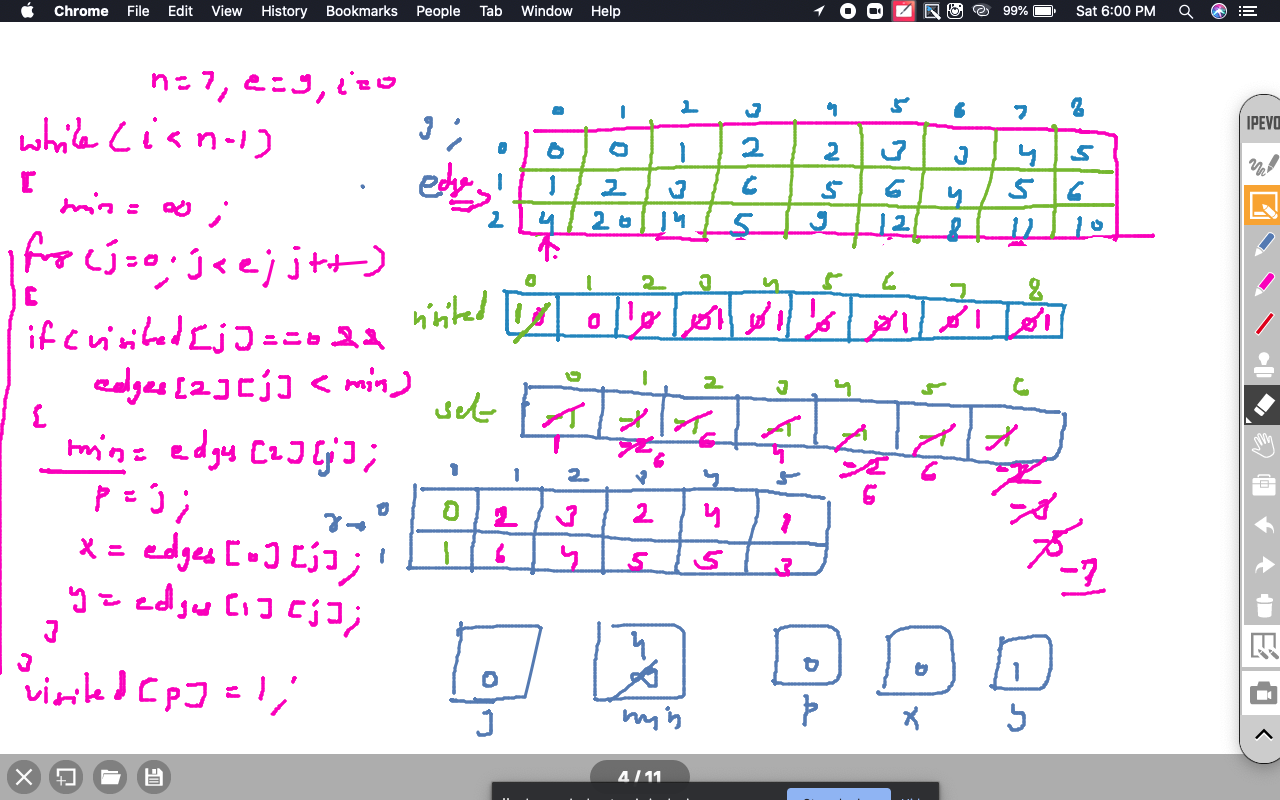 Chrome File Edit View History Bookmarks People Tab Window Help 99% Sat 6:00 PM
n=7, e=9, i=0
while (i < n-1)
[
min = ∞ ;
for (j=0; j<e; j++)
[
if (visited [j] ==0 &&
edges [2][j] < min)
{
min = edges [2][j];
p = j;
x = edges [0][j];
y = edges [1][j];
}
}
visited [p] = 1;
0 1 2 3 4 5 6 7 8
0 0 0 1 2 2 3 3 4 5
edge 1 1 2 3 6 5 6 4 5 6
2 4 20 14 5 9 12 8 11 10
0 1 2 3 4 5 6 7 8
visited 1 0 0 1 0 0 1 0 1 1 0 0 1 0 1 0 1
0 1 2 3 4 5 6
set -1 -1 -1 -1 -1 -1 -1
1 -2 6 6 4 -2 6 6 -2
-3
-5
-7
0 1 2 3 4 5
r → 0 0 2 3 2 4 1
1 1 6 4 5 5 3
0 4 ∞ 0 0 1
j min p x y
IPEVO
4 / 11